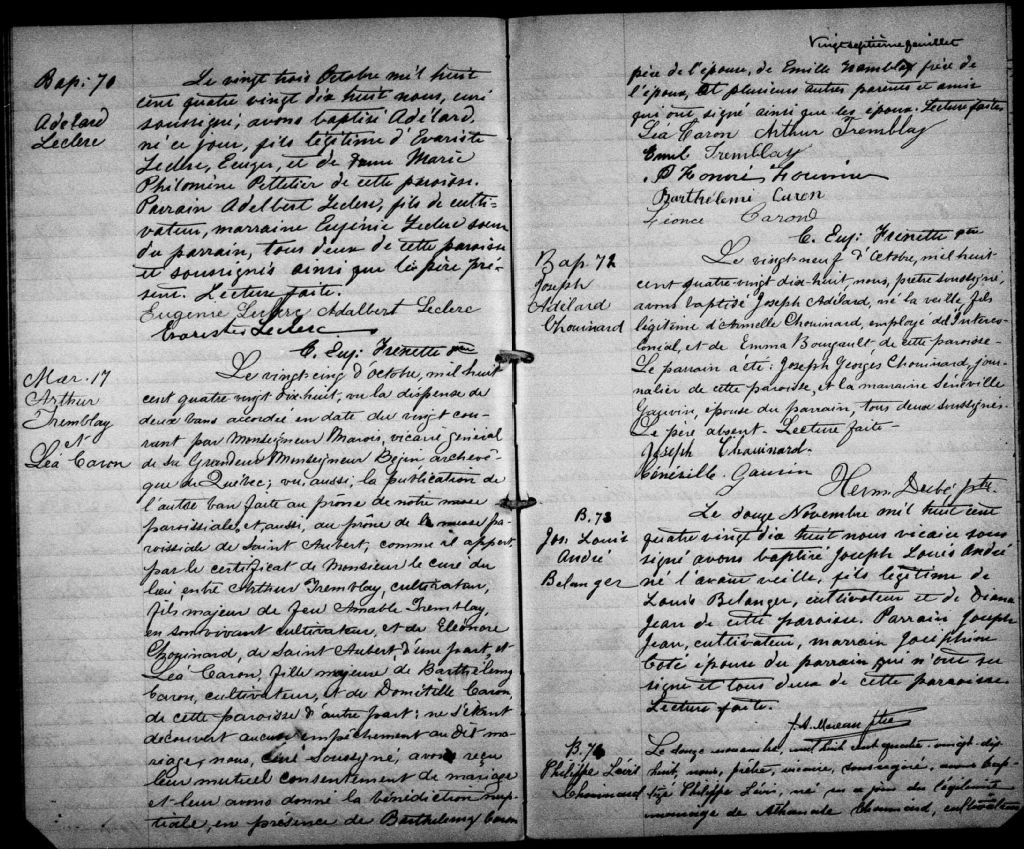 Bap: 70
Adélard
Leclerc
Le vingt trois Octobre mil huit
cent quatre vingt dix huit nous, curé
soussigné, avons baptisé Adélard,
né ce jour, fils légitime d'Evariste
Leclerc, et de dame Marie
Philomène Pelletier de cette paroisse.
Parrain Adelbert Leclerc, fils de culti-
vateur, marraine Eugénie Leclerc soeur
du parrain, tous deux de cette paroisse
et soussignés ainsi que le père pré-
sent. Lecture faite.
Eugenie Leclerc Adalbert Leclerc
Evariste Leclerc
C. Eug: Frenette ptre
Mar. 17
Arthur
Tremblay
et
Léa Caron
Le vingt-cinq d'octobre, mil huit
cent quatre vingt dix huit, vu la dispense de
deux bans accordée en date du vingt cou-
rant par Monseigneur Marois, vicaire général
de Sa Grandeur Monseigneur Bégin, archevê-
que de Québec; vu, aussi, la publication de
l'autre ban faite au prône de notre messe
paroissiale, et, aussi, au prône de la messe pa-
roissiale de Saint Aubert, comme il appert
par le certificat de Monsieur le curé du
lieu entre Arthur Tremblay, cultivateur,
fils majeur de feu Amable Tremblay,
en son vivant cultivateur, et de Eléonore
Chouinard, de Saint Aubert d'une part, et
Léa Caron, fille majeure de Barthélemy
Caron, cultivateur, et de Domitille Caron,
de cette paroisse d'autre part: ne s'étant
découvert aucun empêchement au dit ma-
riage, nous, curé soussigné, avons reçu
leur mutuel consentement de mariage
et leur avons donné la bénédiction nup-
tiale, en présence de Barthelemy Caron
Vingt septième feuillet
père de l'épouse, de Emille Tremblay frère de
l'époux, et plusieurs autres parents et amis
qui ont signé ainsi que les époux. Lecture faite.
Léa Caron Arthur Tremblay
Emile Tremblay
Honoré Fournier
Barthélemi Caron
Léonce Caron
C. Eug: Frenette ptre
Bap 72
Joseph
Adélard
Chouinard
Le vingt-neuf d'Octobre, mil huit
cent quatre-vingt dix-huit, nous, prêtre soussigné,
avons baptisé Joseph Adélard, né la veille, fils
légitime d'Armelle Chouinard, employé de l'Interco-
lonial, et de Emma Bourgault de cette paroisse-
Le parrain a été: Joseph Georges Chouinard, jour-
nalier de cette paroisse, et la marraine Sénéville
Gauvin, épouse du parrain, tous deux soussignés.
Le père absent- Lecture faite-
Joseph Chouinard-
Cénéville Gauvin
B. 73
Jos. Louis
André
Belanger
Le douze Novembre mil huit cent
quatre vingt dix huit nous vicaire sous
signé avons baptisé Joseph Louis André
né l'avant veille, fils légitime de
Louis Belanger, cultivateur et de Diana
Jean de cette paroisse. Parrain Joseph
Jean, cultivateur, marrain Joséphine
Coté épouse du parrain qui n'ont su
signé et tous deux de cette paroisse.
Lecture faite.
J. A. Moreau Ptre
B. 74
Philippe Loüis
Chouinard
Le douze novembre, mil huit cent quatre-vingt-dix-
huit, nous, prêtre, vicaire, soussigné, avons bap-
tisé Philippe Loüis, né ce jour du légitime
mariage de Athanase Chouinard, cultivateur